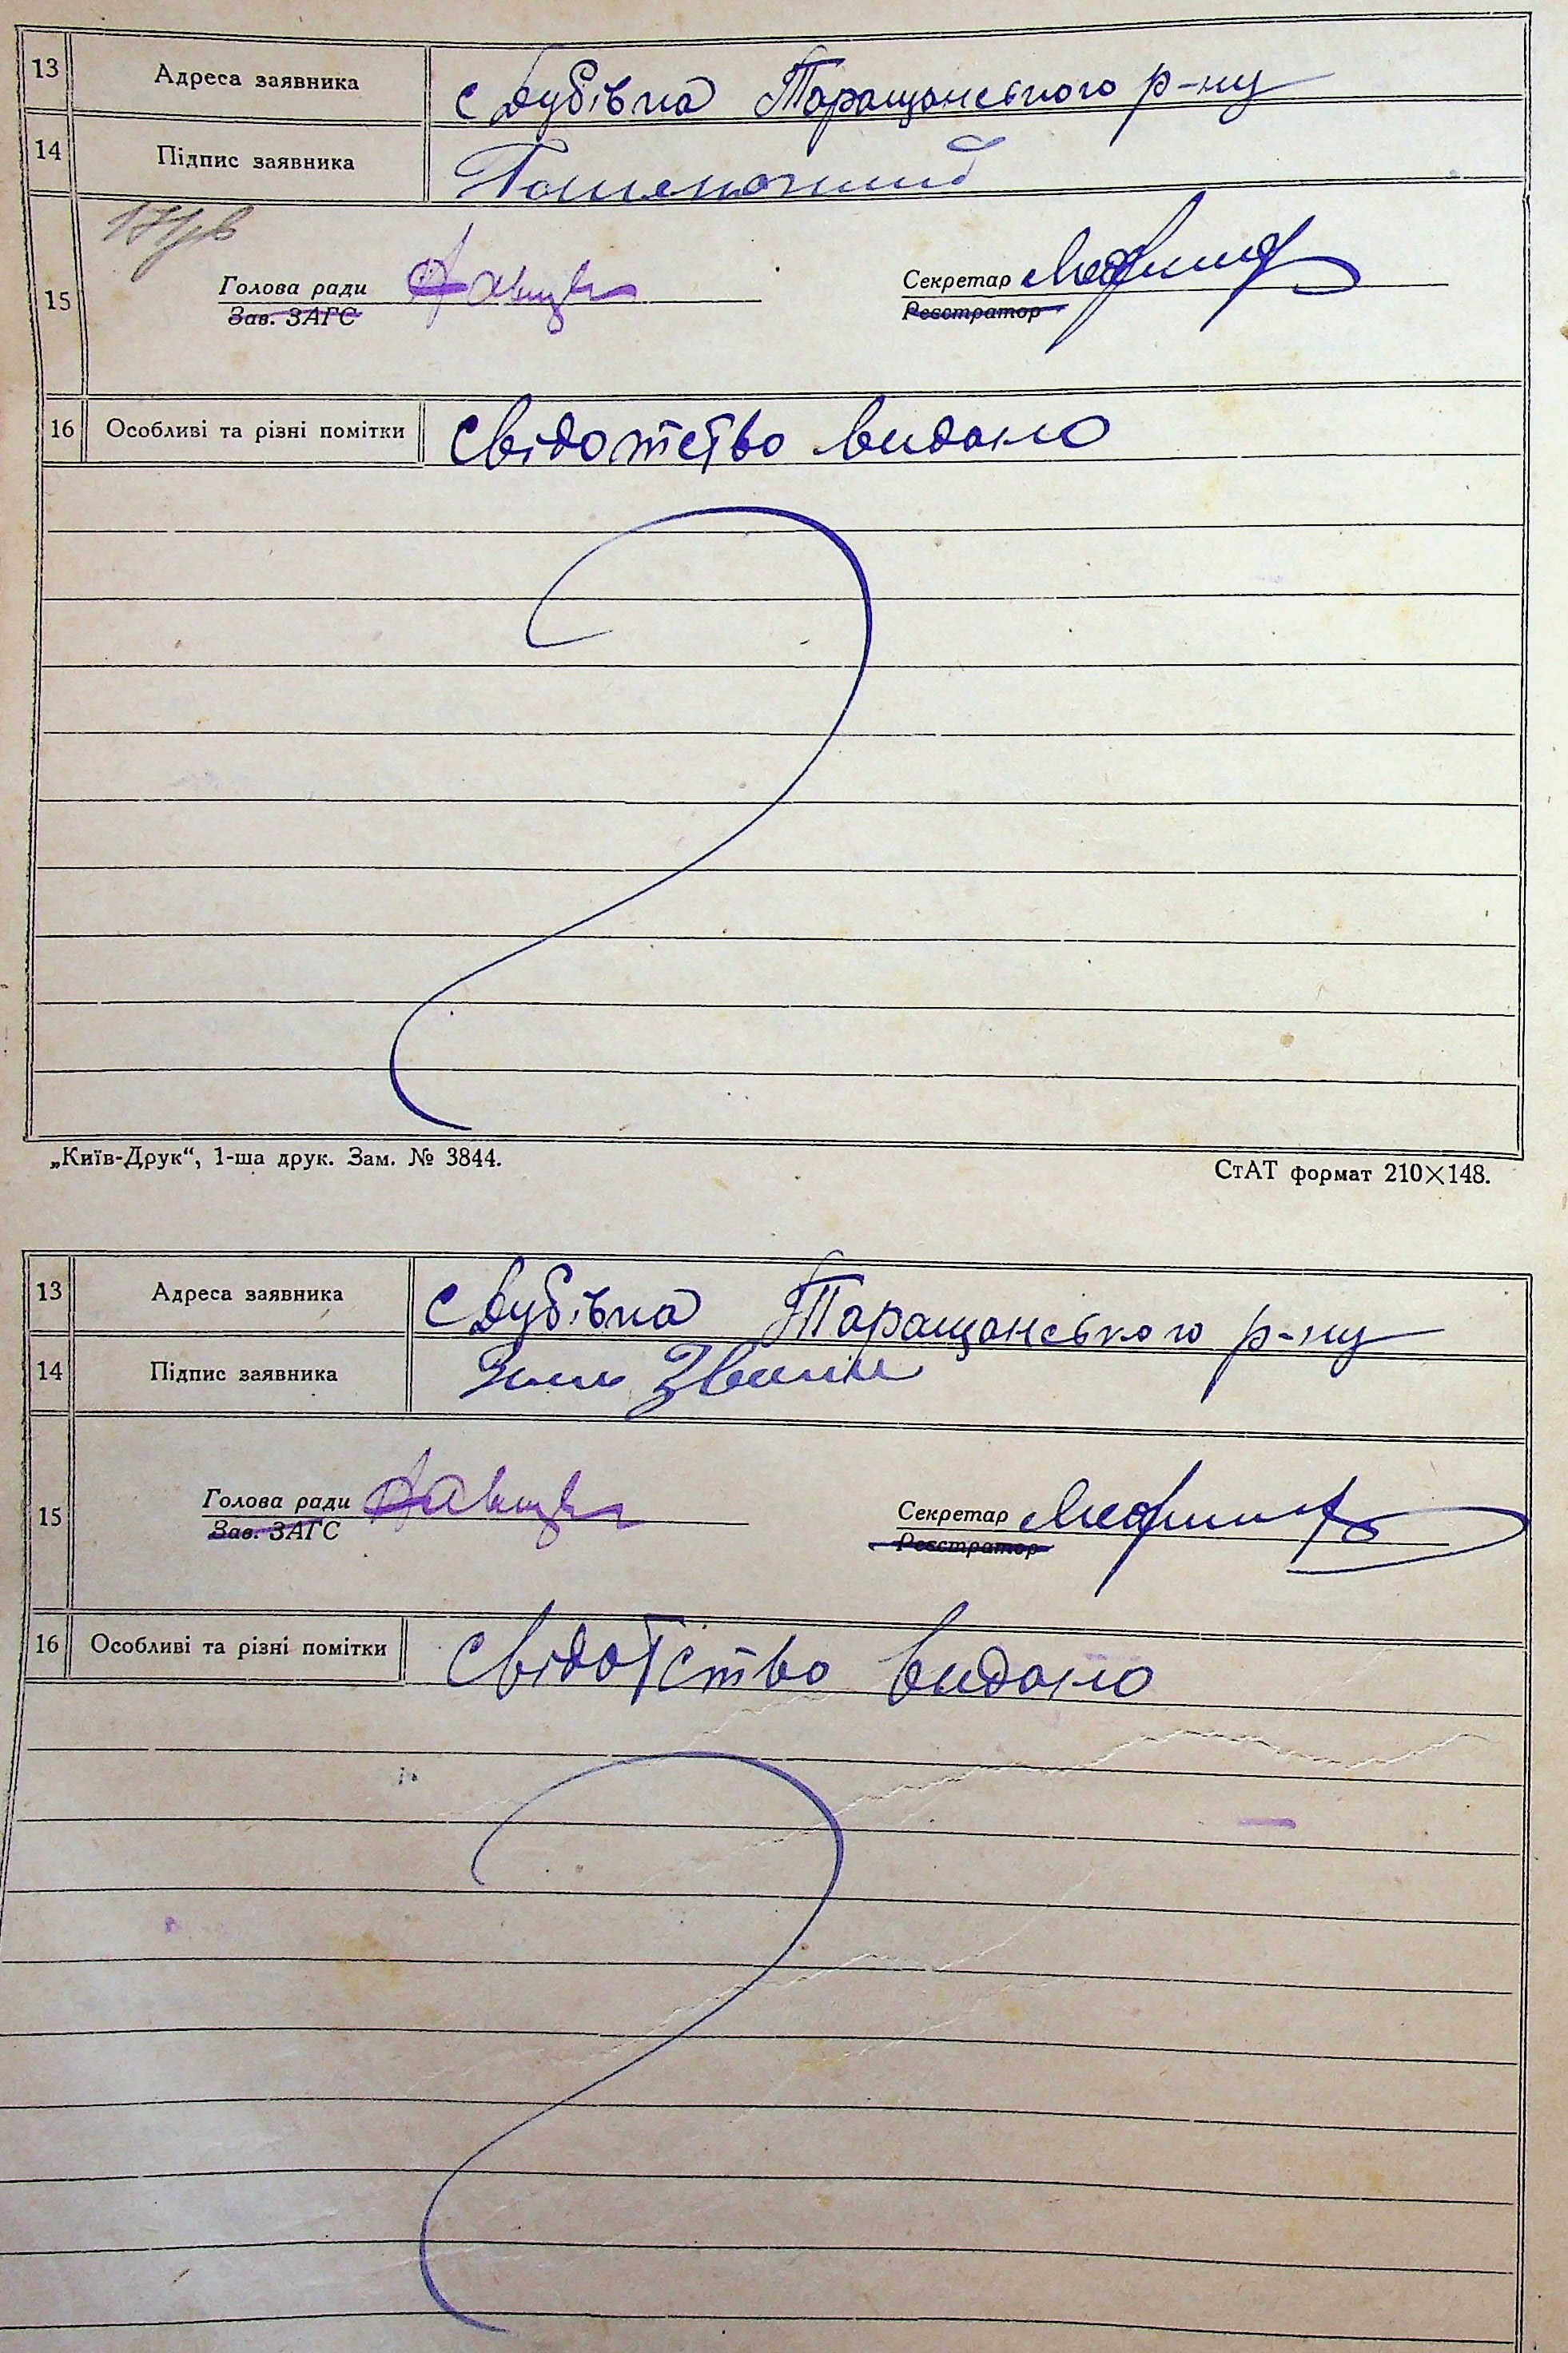 13 Адреса заявника с Дубівка Таращанського р-ну
14 Підпис заявника
15 Голова ради Секретар
Зав. ЗАГС Реєстратор
16 Особливі та різні помітки Свідотство видано
„Київ-Друк“, 1-ша друк. Зам. № 3844. СтАТ формат 210×148.
13 Адреса заявника с Дубівка Таращанського р-ну
14 Підпис заявника
15 Голова ради Секретар
Зав. ЗАГС Реєстратор
16 Особливі та різні помітки Свідотство видано